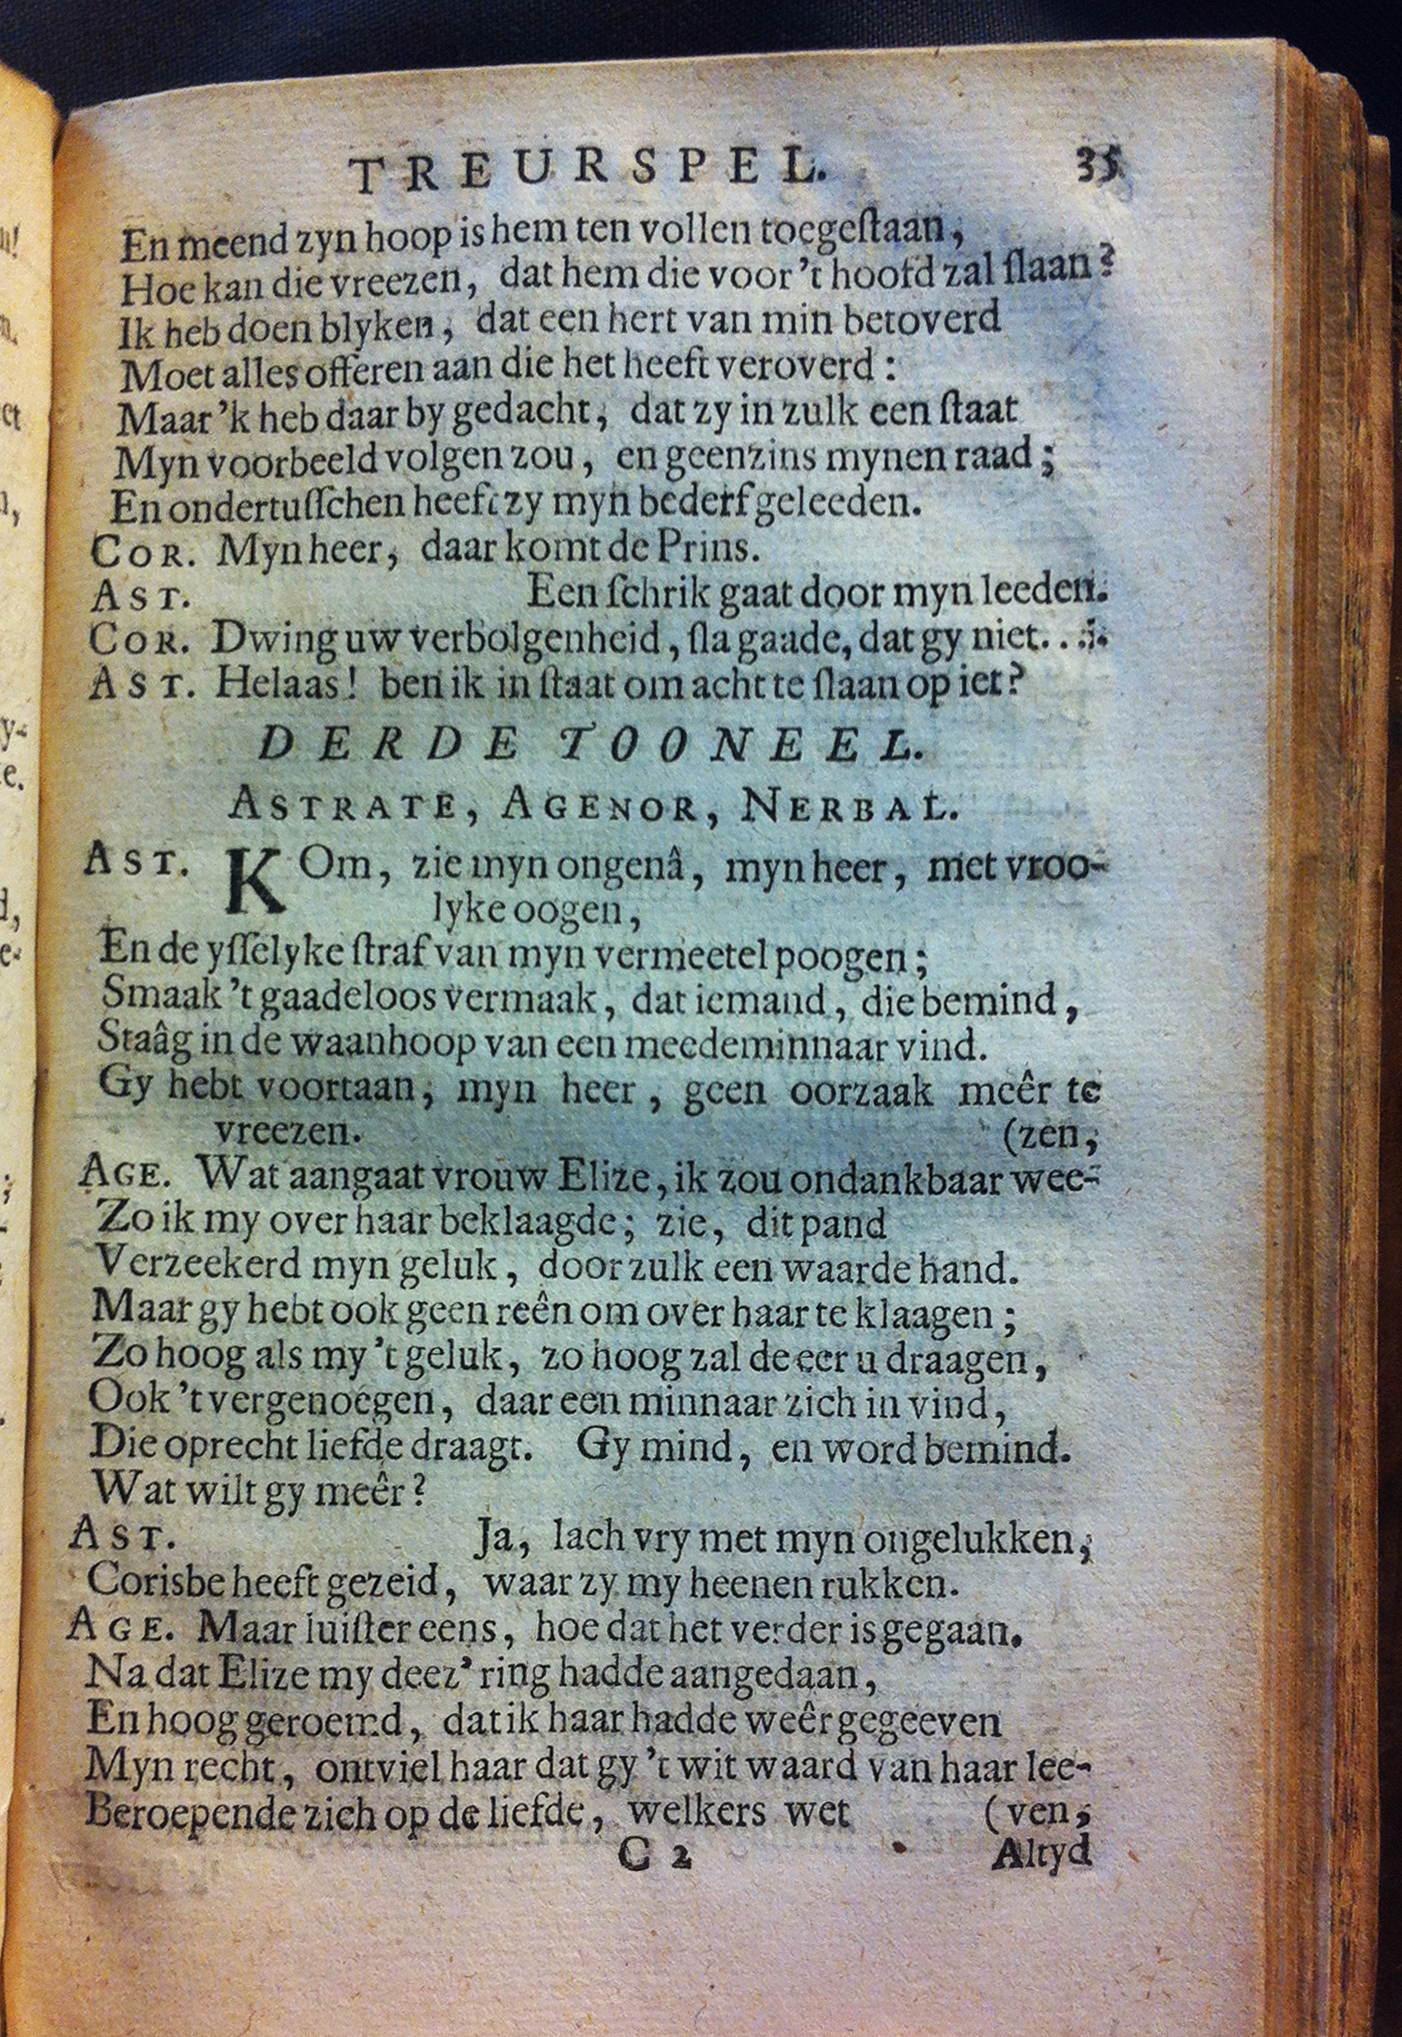 TREURSPEL. 35
En meend zyn hoop is hem ten vollen toegeſtaan,
Hoe kan die vreezen, dat hem die voor 't hoofd zal ſlaan?
Ik heb doen blyken, dat een hert van min betoverd
Moet alles offeren aan die het heeft veroverd:
Maar 'k heb daar by gedacht, dat zy in zulk een ſtaat
Myn voorbeeld volgen zou, en geenzins mynen raad;
En ondertuſſchen heeft zy myn bederf geleeden.
COR. Myn heer, daar komt de Prins.
AST. Een ſchrik gaat door myn leeden.
COR. Dwing uw verbolgenheid, ſla gaade, dat gy niet....
AST. Helaas! ben ik in ſtaat om acht te ſlaan op iet?
DERDE TOONEEL.
ASTRATE, AGENOR, NERBAL.
AST. KOm, zie myn ongenâ, myn heer, met vroo-
lyke oogen,
En de yſſelyke ſtraf van myn vermeetel poogen;
Smaak 't gaadeloos vermaak, dat iemand, die bemind,
Staâg in de waanhoop van een meedeminnaar vind.
Gy hebt voortaan, myn heer, geen oorzaak meêr te
vreezen. (zen,
AGE. Wat aangaat vrouw Elize, ik zou ondankbaar wee-
Zo ik my over haar beklaagde; zie, dit pand
Verzeekerd myn geluk, door zulk een waarde hand.
Maar gy hebt ook geen reên om over haar te klaagen;
Zo hoog als my 't geluk, zo hoog zal de eer u draagen,
Ook 't vergenoegen, daar een minnaar zich in vind,
Die oprecht liefde draagt. Gy mind, en word bemind.
Wat wilt gy meêr?
AST. Ja, lach vry met myn ongelukken,
Corisbe heeft gezeid, waar zy my heenen rukken.
AGE. Maar luiſter eens, hoe dat het verder is gegaan.
Na dat Elize my deez' ring hadde aangedaan,
En hoog geroemd, dat ik haar hadde weêr gegeeven
Myn recht, ontviel haar dat gy 't wit waard van haar lee-
Beroepende zich op de liefde, welkers wet (ven,
C 2 Altyd